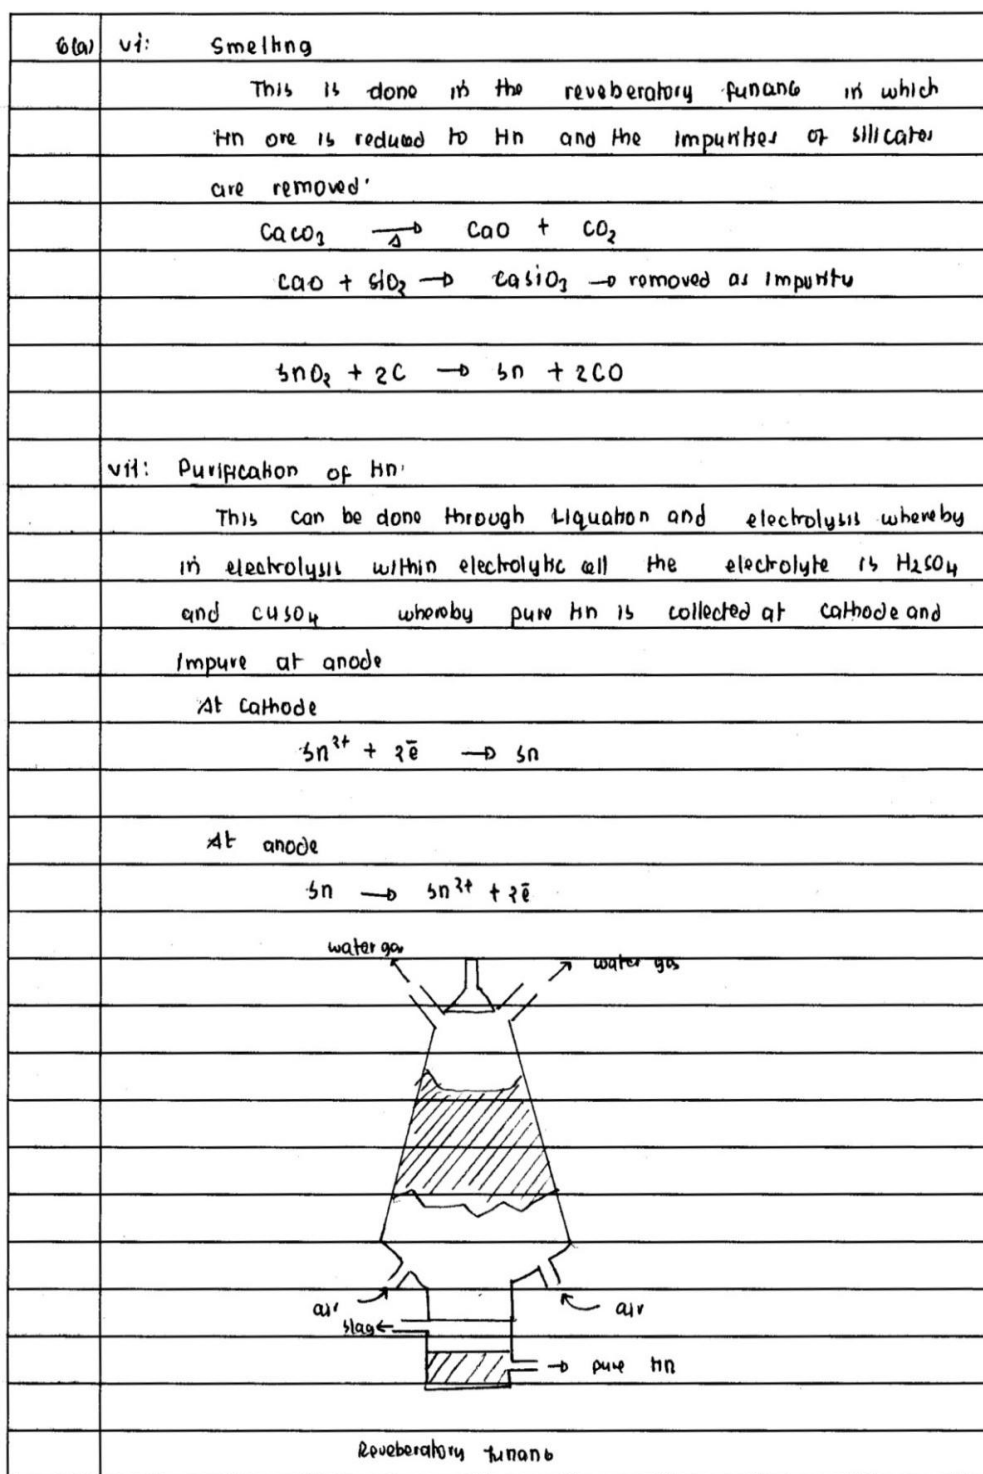 6(a) vi: Smelting
This is done in the reveberatory funance in which
tin ore is reduced to tin and the impurities of silicates
are removed.
CaCO₃ →Δ CaO + CO₂
CaO + SiO₂ → CaSiO₃ → removed as impurity
SnO₂ + 2C → Sn + 2CO
vii: Purification of tin.
This can be done through Liquation and electrolysis whereby
in electrolysis within electrolytic cell the electrolyte is H₂SO₄
and CuSO₄ whereby pure tin is collected at cathode and
Impure at anode
At Cathode
Sn²⁺ + 2ē → Sn
At anode
Sn → Sn²⁺ + 2ē
water gas water gas
air air
slag
pure tin
Reveberatory funance